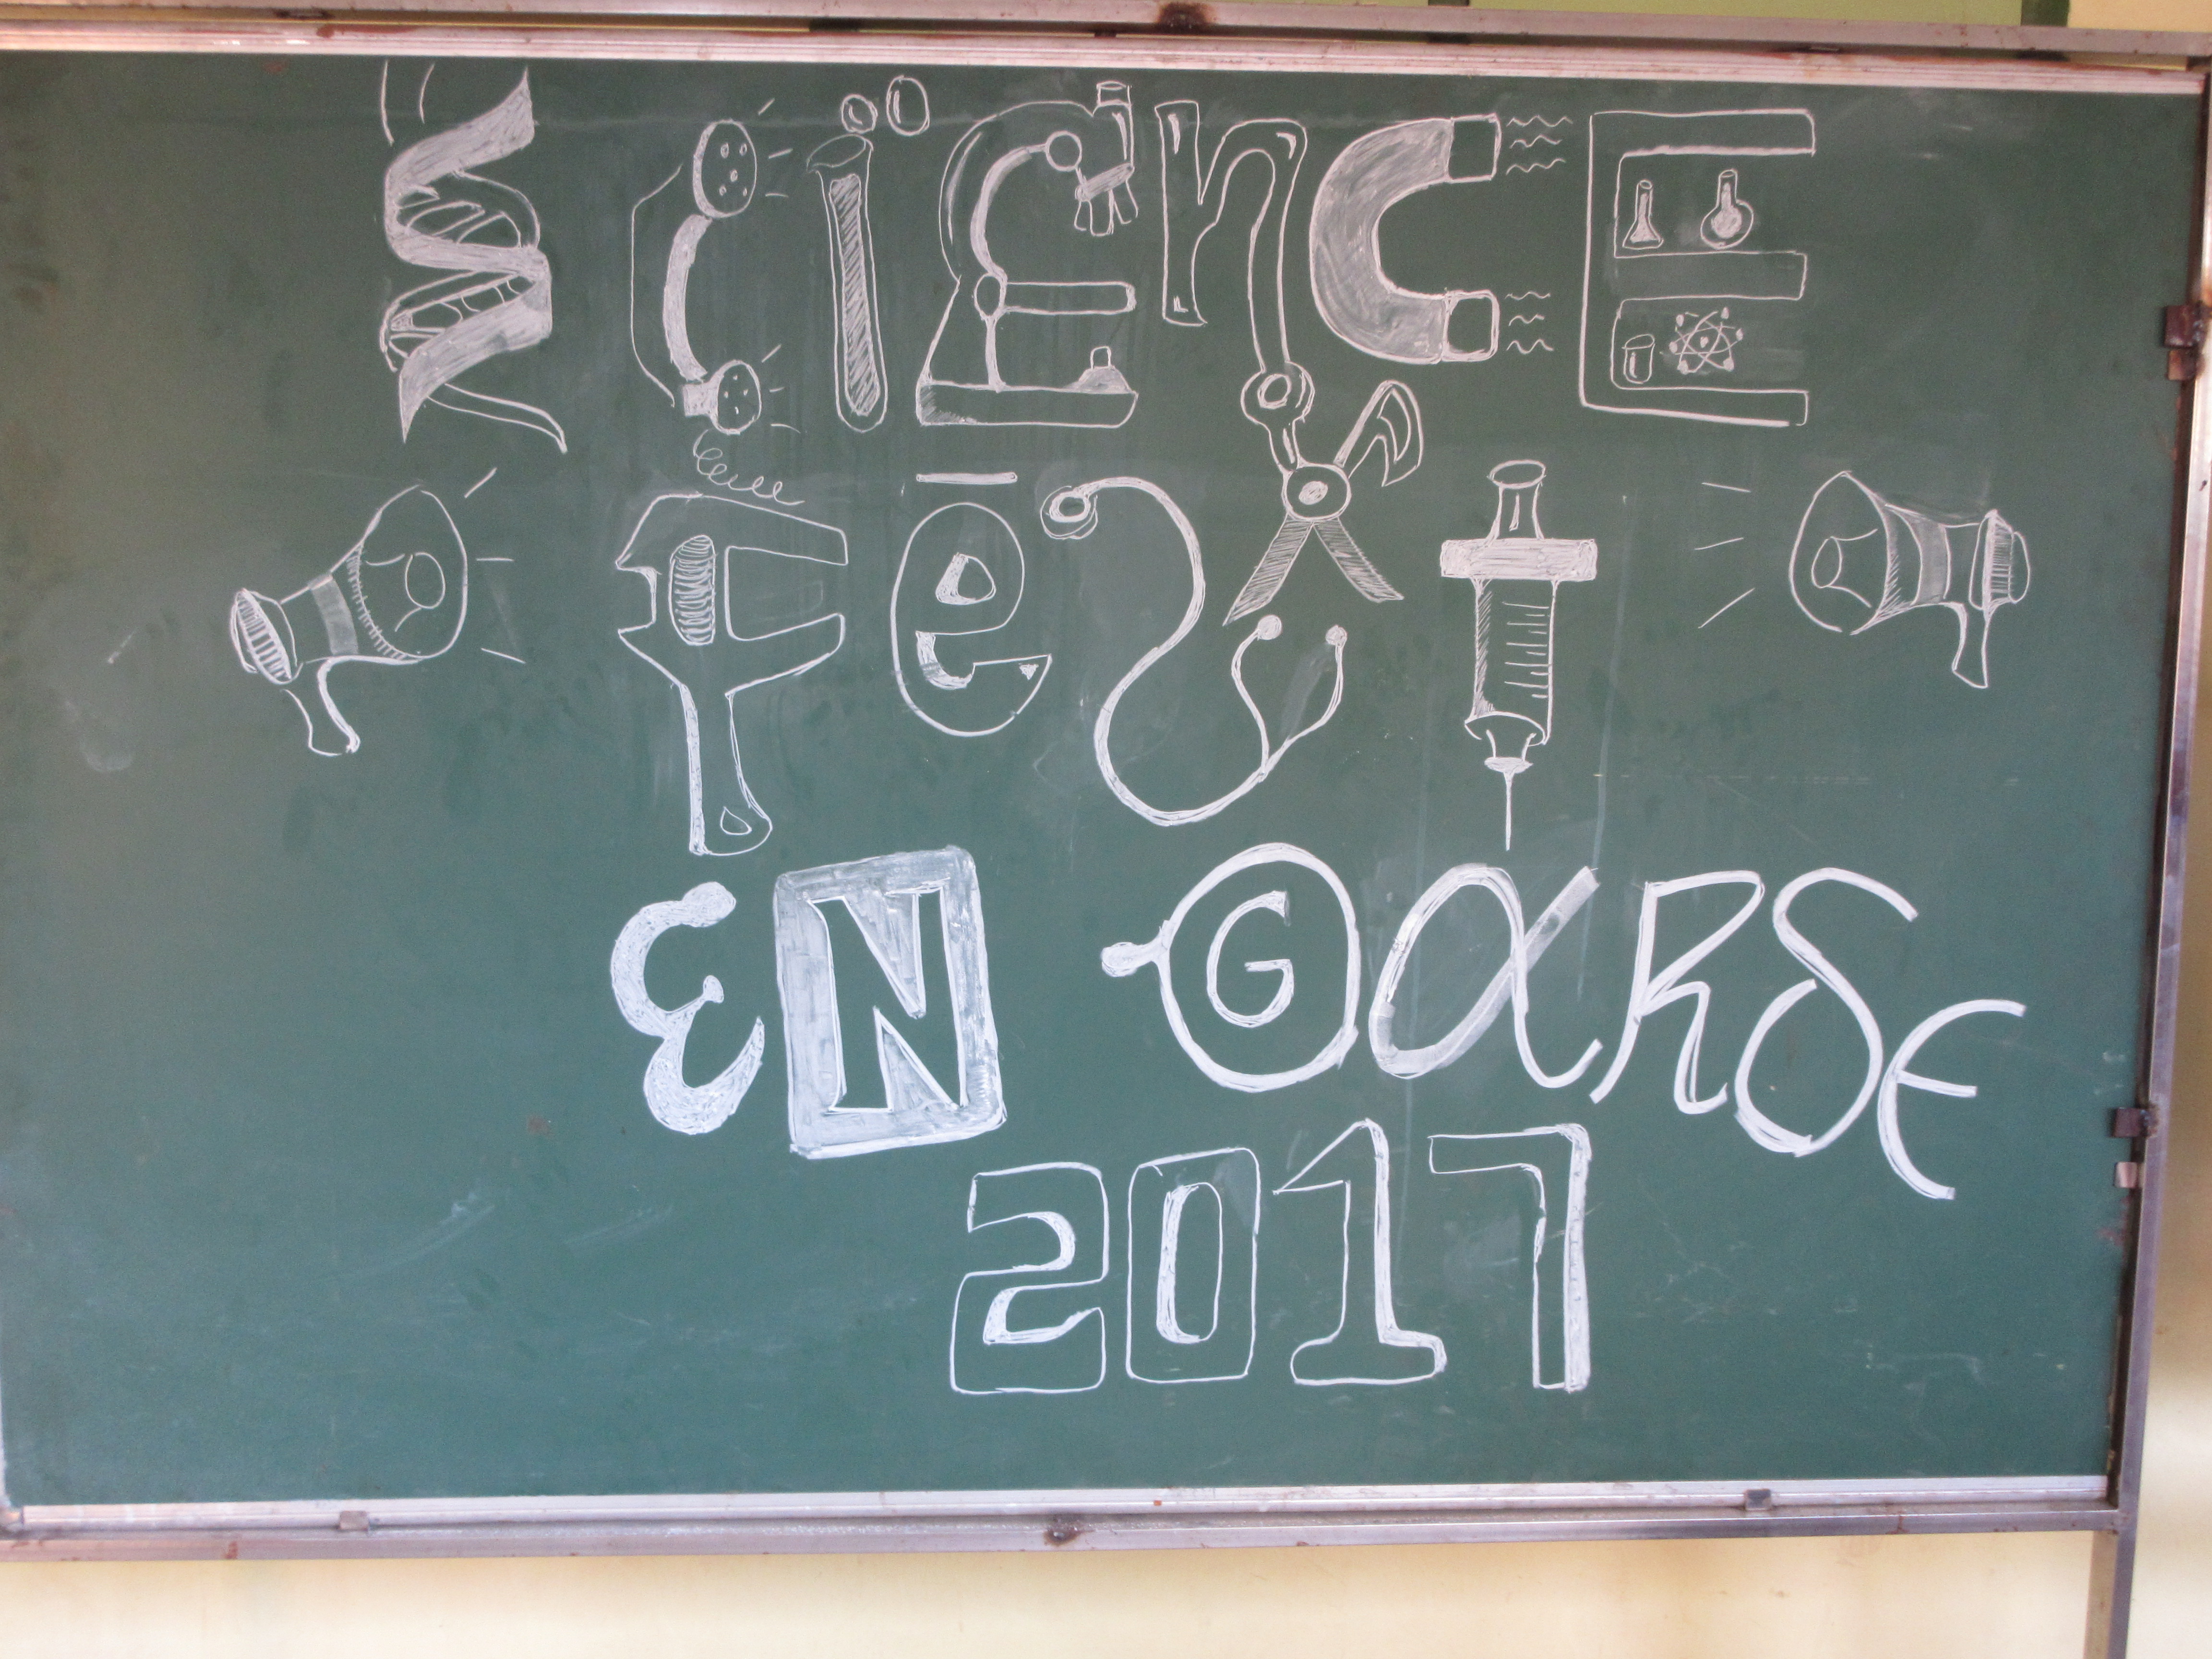 SCiENCE
FeST
EN GARDE
2017